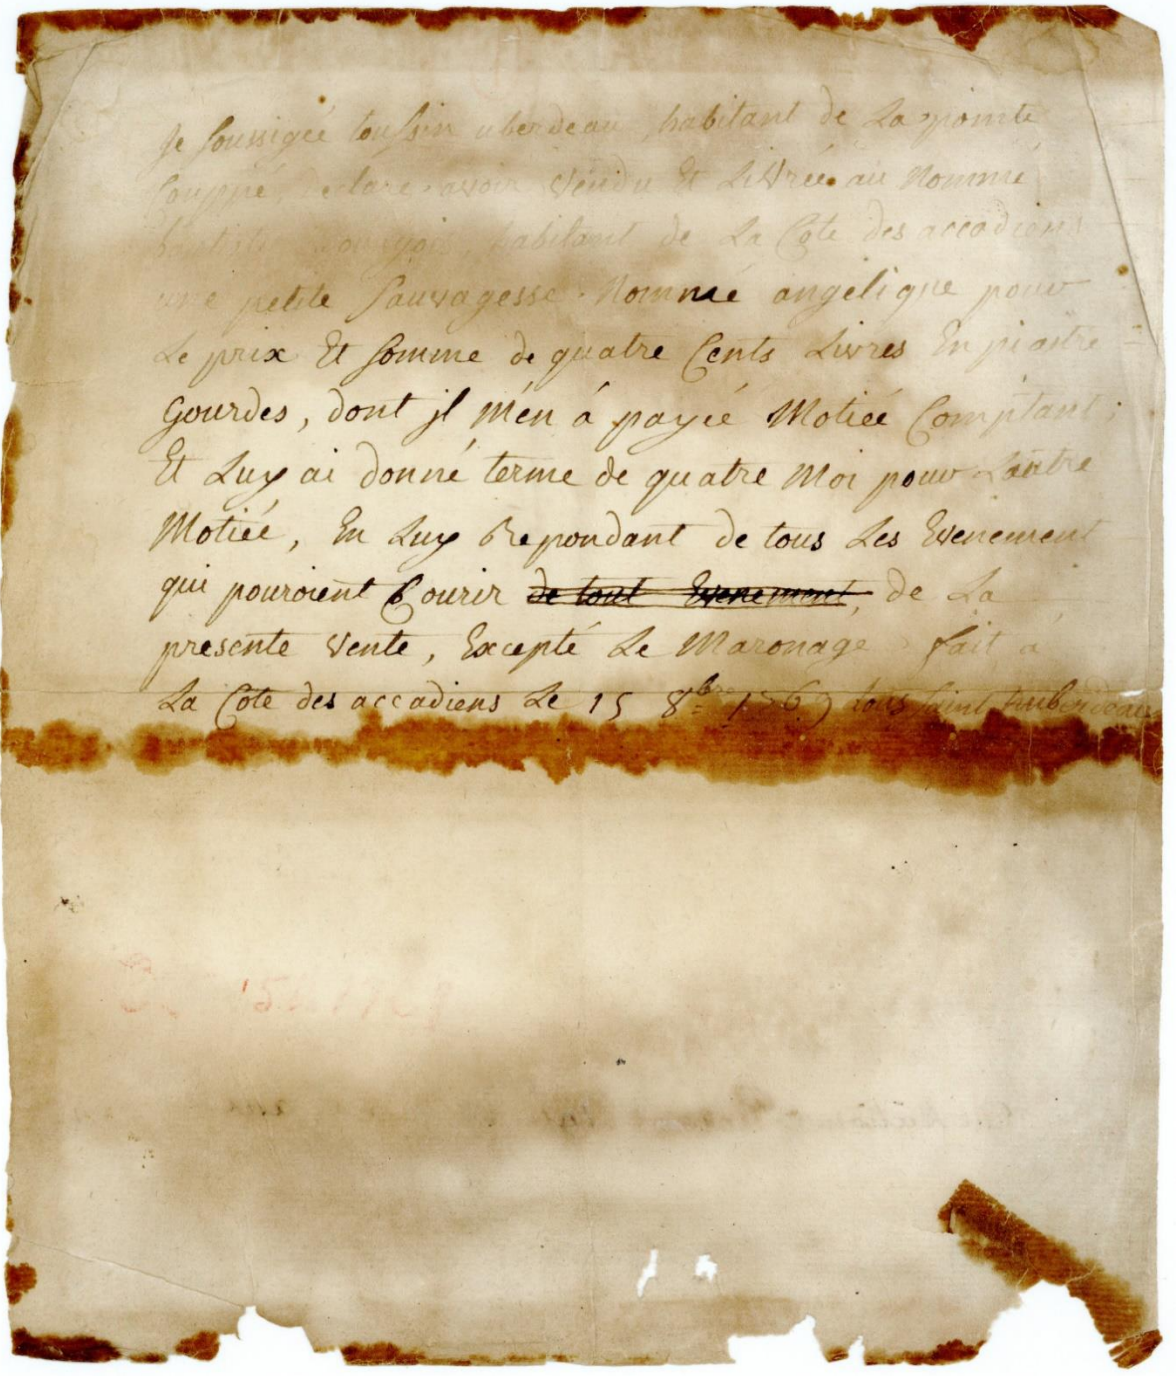 Je soussigée toussin uberdeau habitant de La pointe
Couppé, declare avoir Vendu Et Livrée au Nommé
habitant de La Cote des accadiens
une petite Sauvagesse Nommé angelique pour
Le prix Et somme de quatre Cents Livres En piastre =
Gourdes, dont jl m'en á payié Motiée Comptant;
Et Luy ai donné terme de quatre Moi pour L'autre
Motiée, En Luy Repondant de tous Les Evenement
qui pouroient Courir de tout Evenement, de La
presente Vente, Excepté Le Maronage fait á
La Cote des accadiens Le 15 8bre 1769 tous saint huberdeau